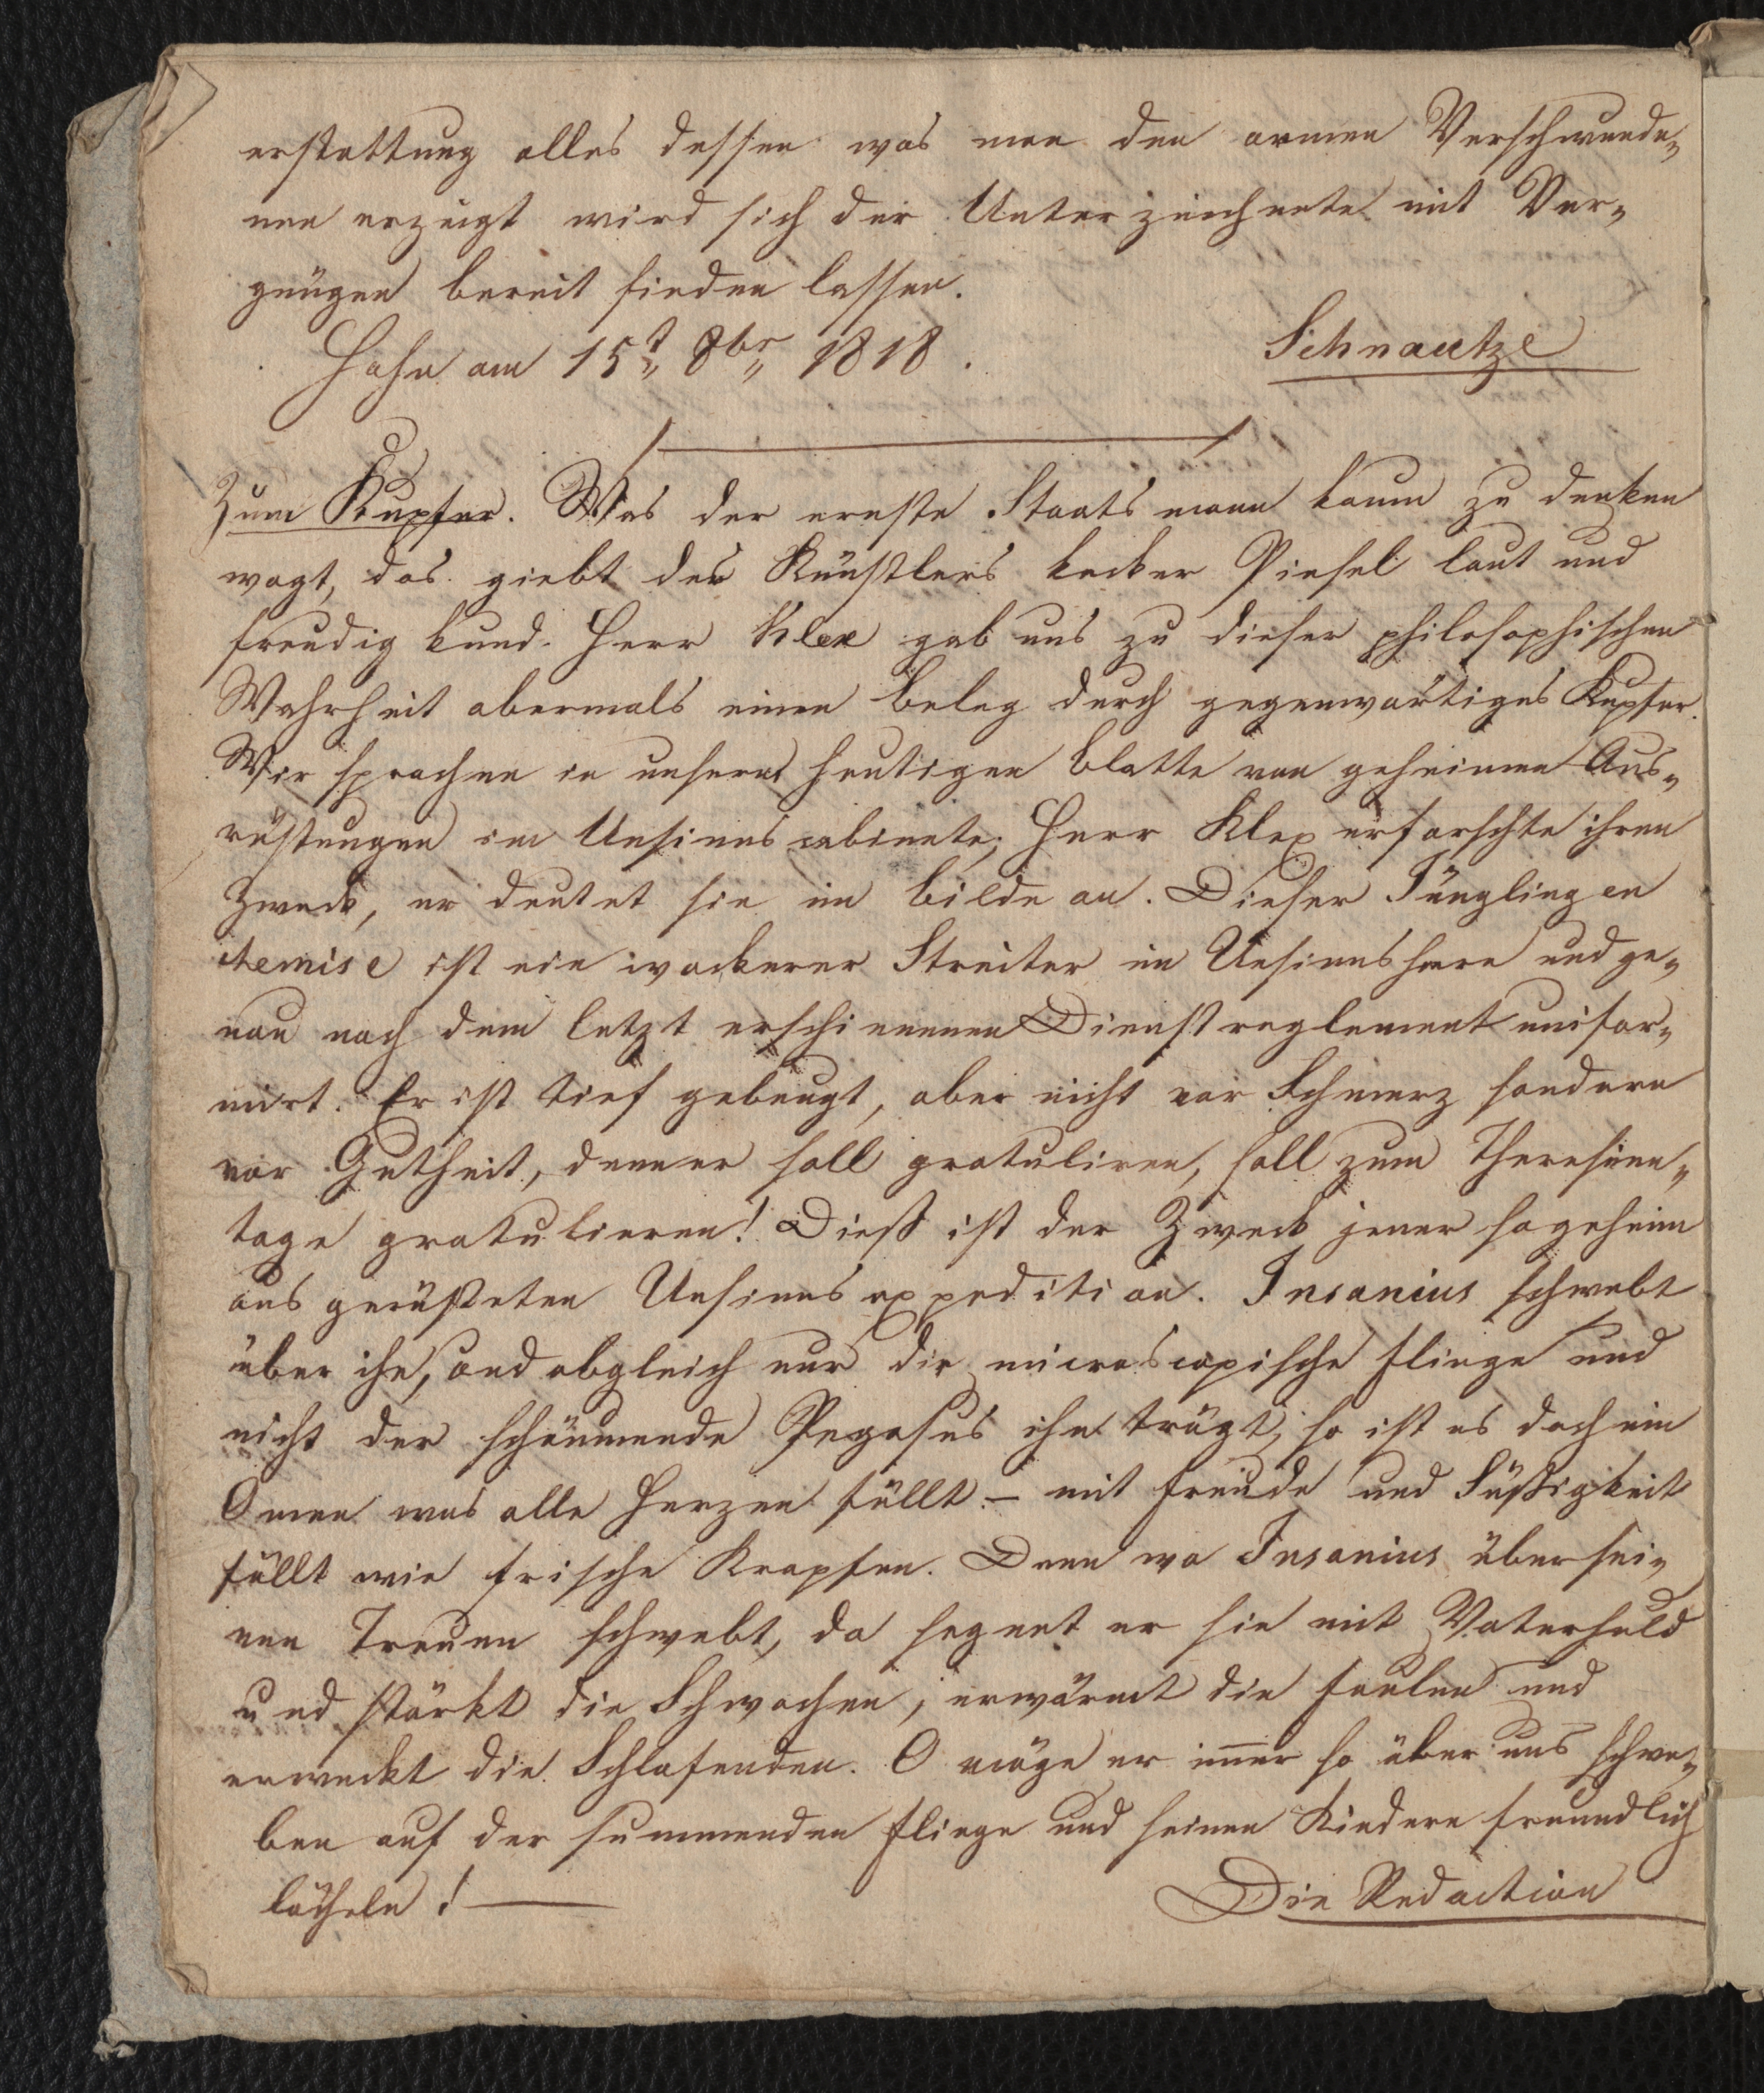 erstattung alles dessen was man den armen Verschwunde-
nen erzeigt wird sich der Unterzeichnete mit Ver-
gnügen bereit finden lassen.
Hahn am 15t. 8br. 1818.
Schnautze
Zum Kupfer. Was der ernste Staatsmann kaum zu denken
wagt, das giebt des Künstlers kecker Pinsel laut und
freudig kund. Herr Klex gab uns zu dieser philosophischen
Wahrheit abermals einen Beleg durch gegenwärtiges Kupfer.
Wir sprachen in unserm heutigen Blatte von geheimen Aus-
rüstungen im Unsinnscabinete; Herr Klex erforschte ihren
Zweck, er deutet sie im Bilde an. Dieser Jüngling en
chemise ist ein wackerer Streiter im Unsinnsheere und ge-
nau nach dem letzt erschienenen Dienstreglement unifor-
mirt. Er ist tief gebeugt, aber nicht vor Schmerz sondern
vor Gutheit, denn er soll gratuliren, soll zum Theresien-
tage gratulieren! Dieß ist der Zweck jener so geheim
ausgerüsteten Unsinnsexpedition. Insanius schwebt
über ihr, und obgleich nur die microscopische Fliege und
nicht der schäumende Pegasus ihn trägt, so ist es doch ein
Omen was alle Herzen füllt – mit Freude und Süßigkeit
füllt wie frische Krapfen. Denn wo Insanius über sei-
nen Treuen schwebt, da segnet er sie mit Vaterhuld
und stärkt die Schwachen, erwärmt die Faulen und
erweckt die Schlafenden. O möge er im̅er so über uns schwe-
ben auf der summenden Fliege und seinen Kindern freundlich
lächeln! —
Die Redaction